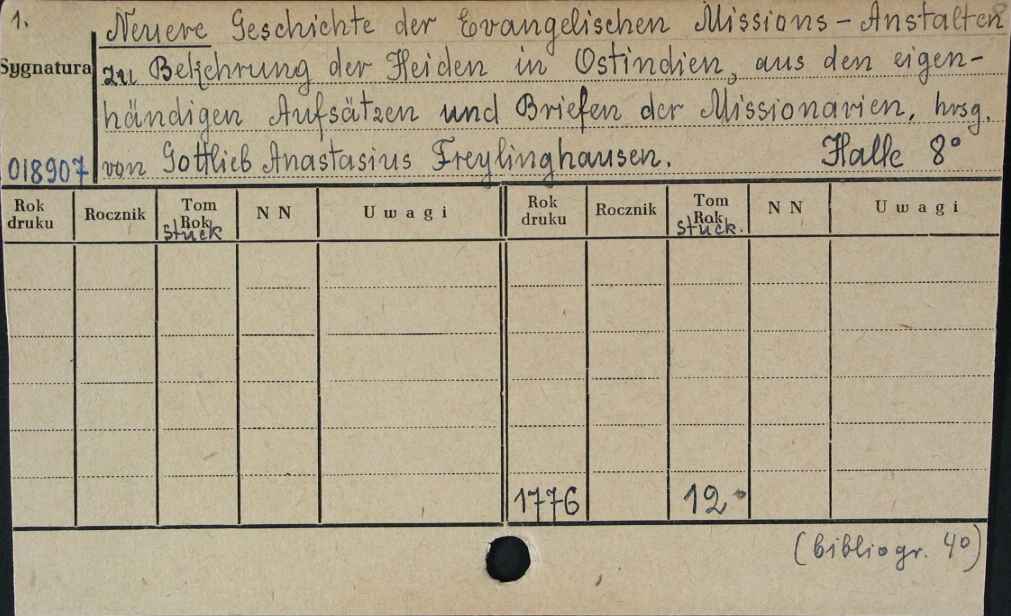 1.
Neuere Geschichte der Evangelischen Missions-Anstalten
Sygnatura zu Bekehrung der Heiden in Ostindien, aus den eigen-
händigen Aufsätzen und Briefen der Missionarien, hrsg.
018907 von Gottlieb Anastasius Freylinghausen. Halle 8°
Rok druku Rocznik Tom Rok Stück NN Uwagi Rok druku Rocznik Tom Rok Stück. NN Uwagi
1776 12
(bibliogr. 4°)